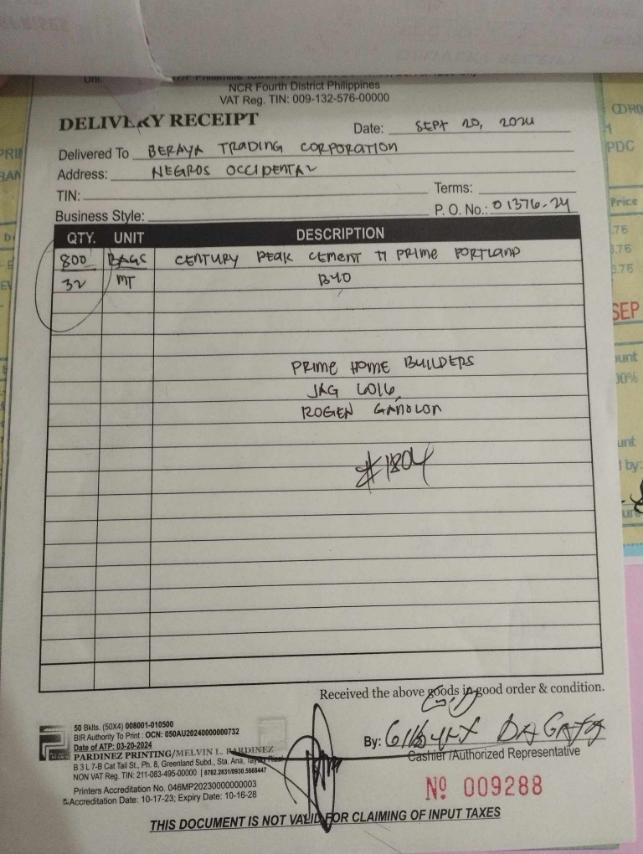 NCR Fourth District Philippines
VAT Reg. TIN: 009-132-576-00000
DELIVERY RECEIPT
Date: SEPT 20, 2024
Delivered To BERAYA TRADING CORPORATION
Address: NEGROS OCCIDENTAL
TIN: Terms:
Business Style: P. O. No.: 01376-24
QTY. UNIT DESCRIPTION
800 BAGS CENTURY PEAK CEMENT T1 PRIME PORTLAND
32 MT B40
PRIME HOME BUILDERS
JAG 6016
ROGEN
#1804
Received the above goods in good order & condition.
50 Bklts. (50X4) 008001-010500
BIR Authority To Print : OCN: 050AU20240000000732
Date of ATP: 03-20-2024
PARDINEZ PRINTING/MELVIN L. PARDINEZ
B 3 L 7-B Cat Tail St., Ph. 8, Greenland Subd., Sta. Ana,
NON VAT Reg. TIN: 211-083-495-00000
Printers Accreditation No. 046MP20230000000003
Accreditation Date: 10-17-23; Expiry Date: 10-16-28
By:
Cashier /Authorized Representative
Nº 009288
THIS DOCUMENT IS NOT VALID FOR CLAIMING OF INPUT TAXES
CORO
PDC
Price
SEP